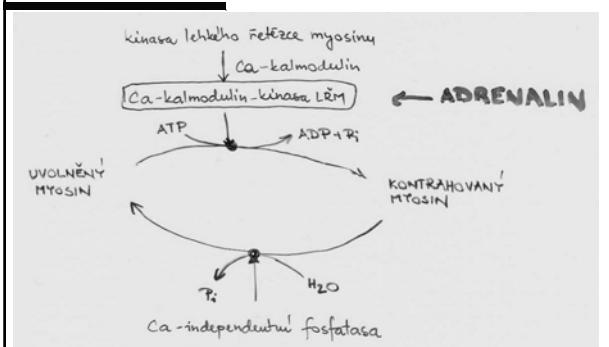 kinasa lehkého řetězce myosinu
Ca-kalmodulin
Ca-kalmodulin-kinasa LŘM
ADRENALIN
ATP
ADP+Pi
UVOLNĚNÝ
MYOSIN
KONTRAHOVANÝ
MYOSIN
Pi
H2O
Ca-independentní fosfatasa